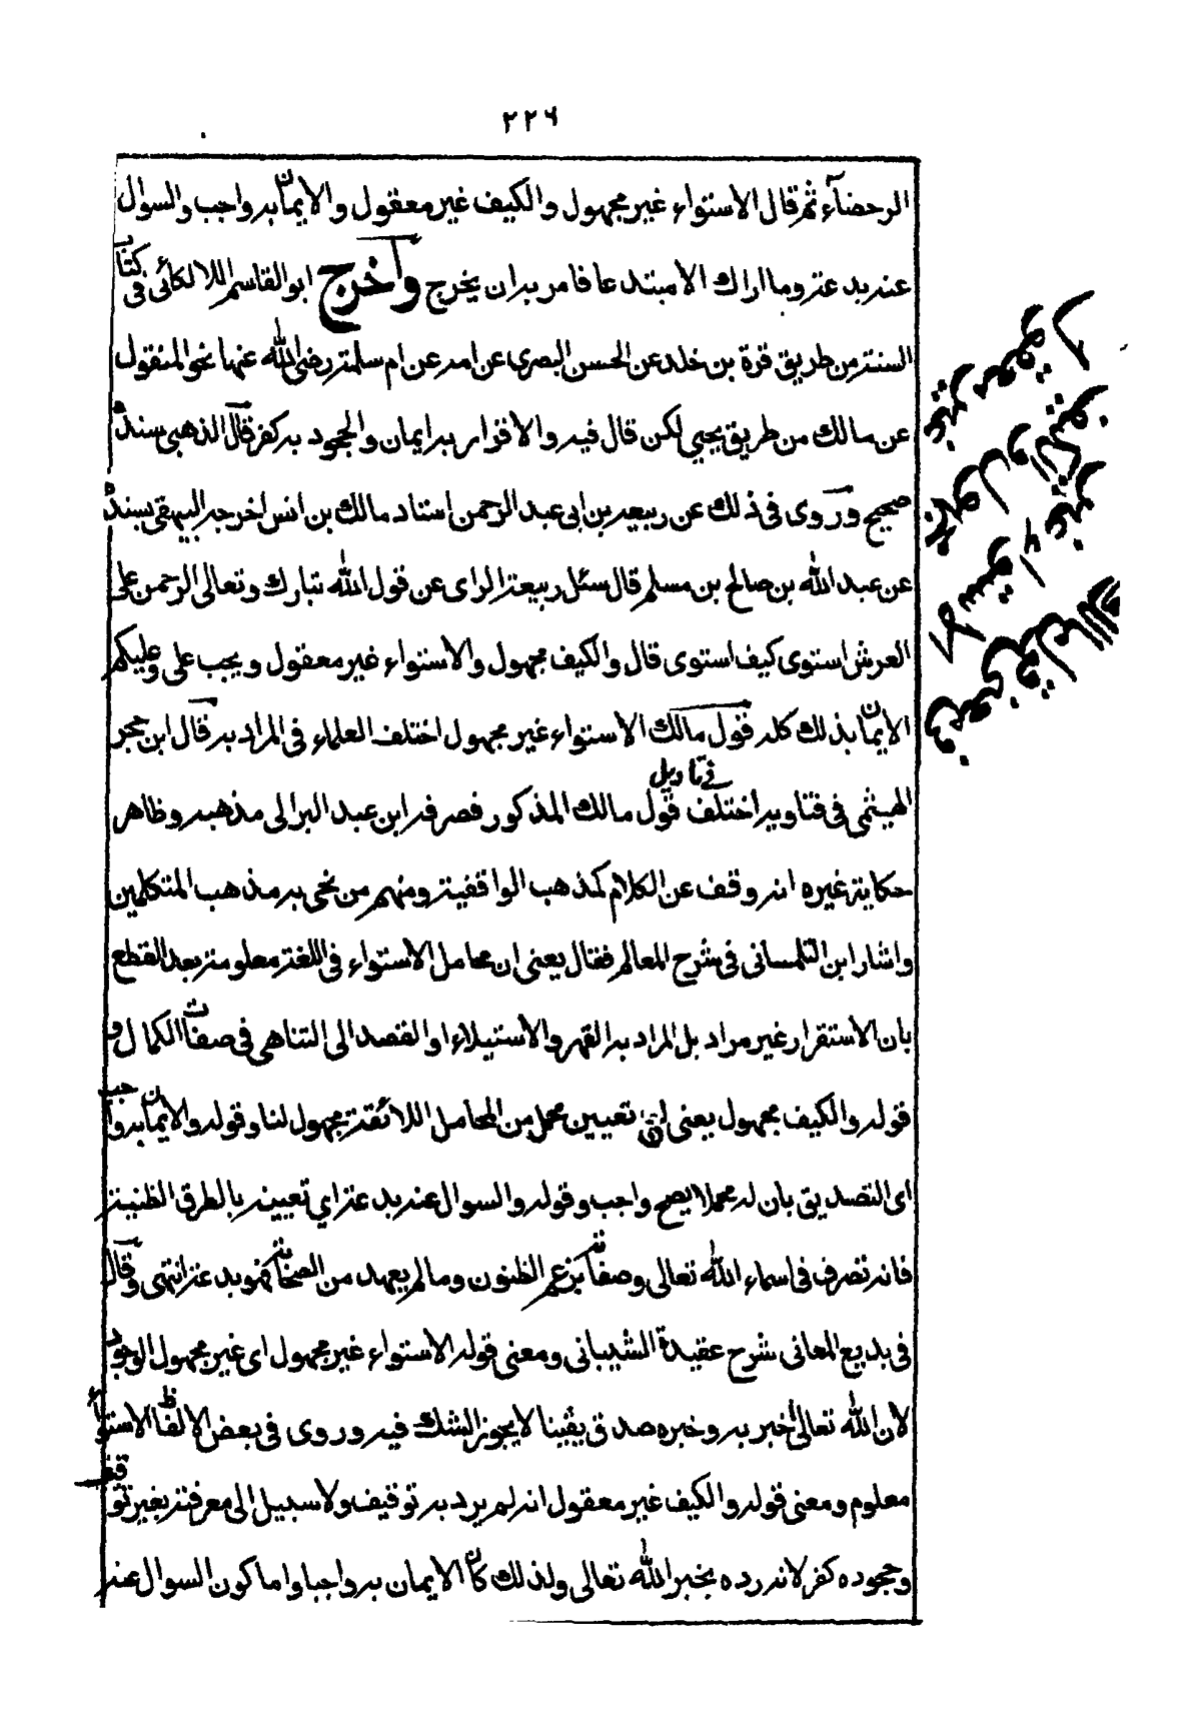 ٢٢٦
الرحضآء ثم قال الاستواء غير مجهول والكيف غير معقول والايمان به واجب والسوال
عنه بدعة وما اراك الا مبتدعا فامر به ان يخرج وأخرج ابو القاسم اللالكائى فى كتاب
السنة من طريق قرة بن خلد عن الحسن البصرى عن امه عن ام سلمة رضى الله عنها نحو المنقول
عن مالك من طريق يحيي لكن قال فيه والاقرار به ايمان والجحود به كفر قال الذهبى سنده
صحيح وروى فى ذلك عن ربيعه بن ابى عبد الرحمن استاد مالك بن انس اخرجه البيهقى بسنده
عن عبد الله بن صالح بن مسلم قال سئل ربيعة الراى عن قول الله تبارك وتعالى الرحمن على
العرش استوى كيف استوى قال والكيف مجهول والاستواء غير معقول ويجب على وعليكم
الايمان بذلك كله قول مالك الاستواء غير مجهول اختلف العلماء فى المراد به قال ابن حجر
الهيثمى فى فتاويه اختلف فى تاويل قول مالك المذكور فصرفه ابن عبد البر الى مذهبه وظاهر
حكاية غيره انه وقف عن الكلام كمذهب الواقفية ومنهم من نحى به مذهب المتكلمين
واشار ابن التلمسانى فى شرح المعالم فقال يعنى ان محامل الاستواء فى اللغة معلومة بعد القطع
بان الاستقرار غير مراد بل المراد به القهر والاستيلاء او القصد الى التناهى فى صفات الكمال و
قوله والكيف مجهول يعنى ان تعيين محمل من المحامل اللائقة مجهول لنا وقوله والايمان به واجب
اى التصديق بان له محملا يصح واجب وقوله والسوال عنه بدعة اي تعيينه بالطرق الظنية
فانه تصرف فى اسماء الله تعالى وصفاته بزعم الظنون ومالم يعهد من الصحابة فهو بدعة انتهى وقال
فى بديع المعانى شرح عقيدة الشيبانى ومعنى قوله الاستواء غير مجهول اى غير مجهول الوجود
لان الله تعالى أخبر به وخبره صدق يقينا لا يجوز الشك فيه وروى فى بعض الالفاظ الاستواء
معلوم ومعنى قوله والكيف غير معقول انه لم يرد به توقيف ولا سبيل الى معرفته بغير توقيف
وجحوده كفر لانه رده بخبر الله تعالى ولذلك كان الايمان به واجبا واما كون السوال عنه
فى معنى قول مالك
الاستواء غير
مجهول والكيف
غير معقول